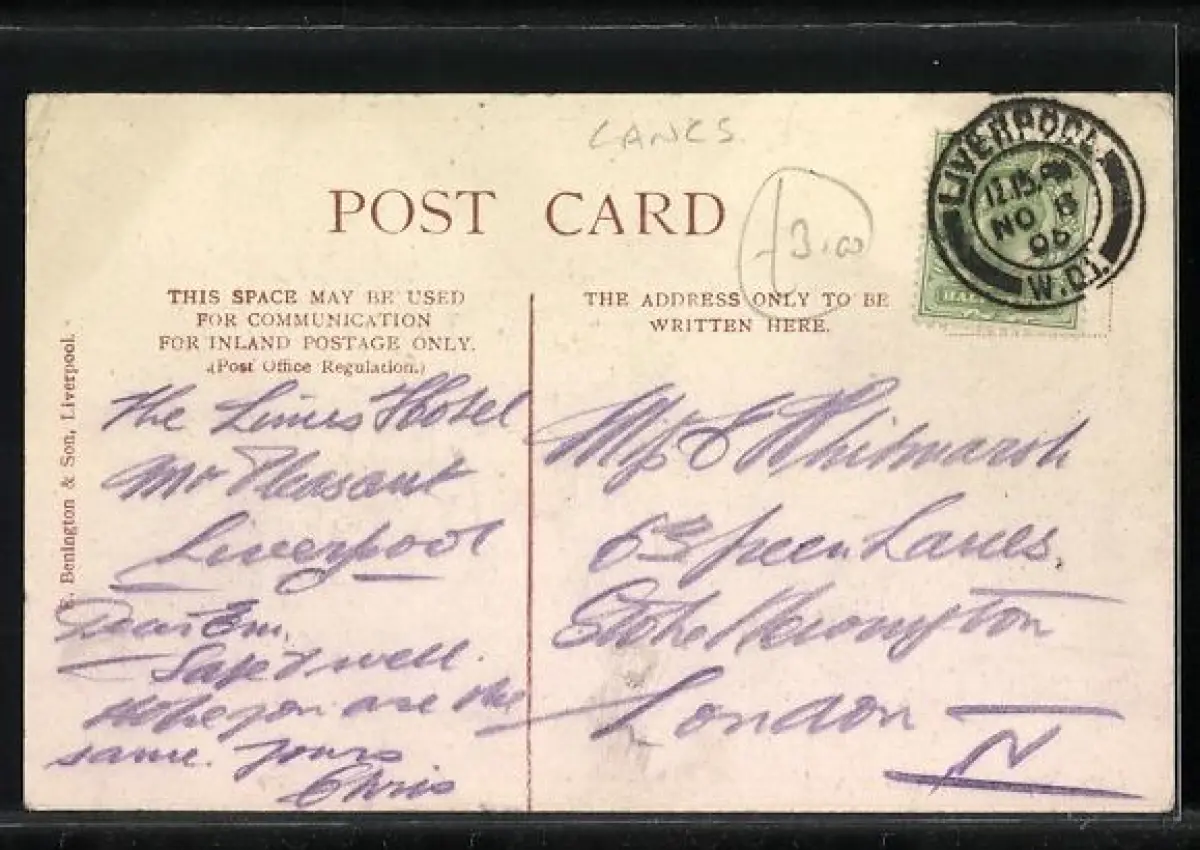 LANCS.
POST CARD
£3.00
LIVERPOOL
12.15
NO 8
06
W.D.1.
HAL
THIS SPACE MAY BE USED
FOR COMMUNICATION
FOR INLAND POSTAGE ONLY.
(Post Office Regulation.)
THE ADDRESS ONLY TO BE
WRITTEN HERE.
E. Benington & Son, Liverpool.
The Limes Hotel
Mt Pleasant
Liverpool
Dear Em.
Safe & well.
Hope you are the
same. Yours
Chris
Miss E Whitmarsh
Green Lanes,
Stoke Newington
London
N